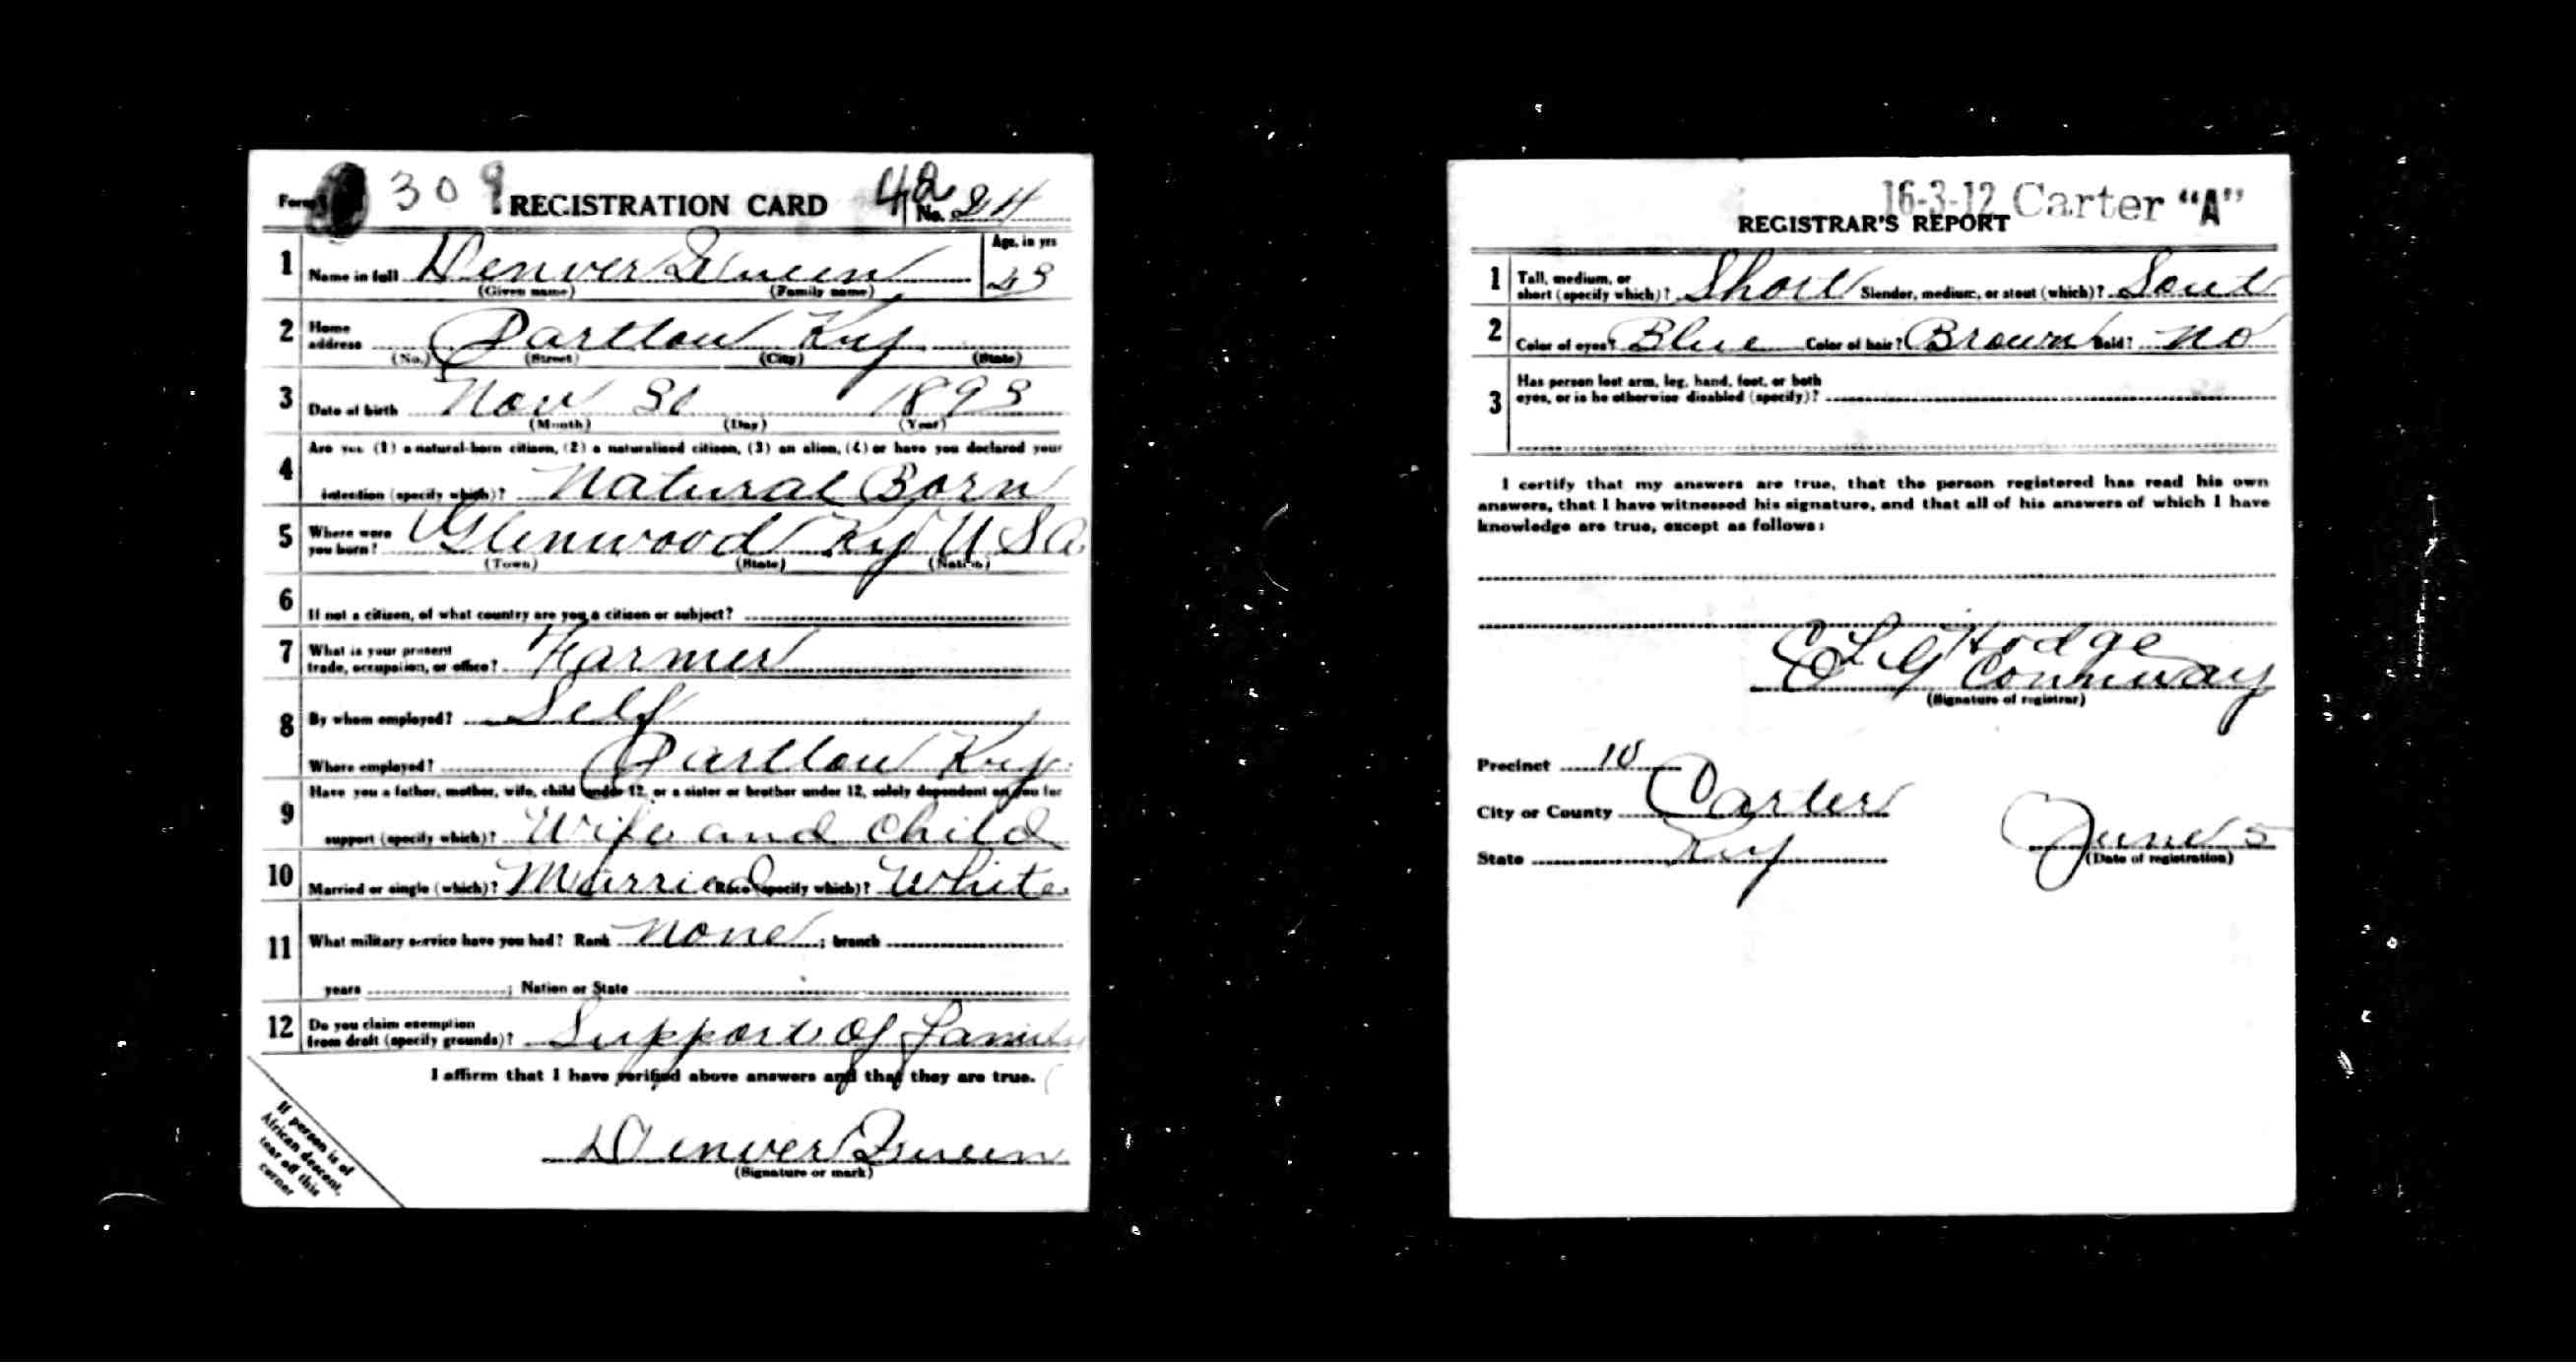 Form 1 309 REGISTRATION CARD 42 No. 24
1 Name in full Denver Queen Age, in yrs 23
(Given name) (Family name)
2 Home address Partlow Ky
(No.) (Street) (City) (State)
3 Date of birth Nov 30 1893
(Month) (Day) (Year)
4 Are you (1) a natural-born citizen, (2) a naturalized citizen, (3) an alien, (4) or have you declared your
intention (specify which)? Natural Born
5 Where were you born? Glenwood Ky U S a
(Town) (State) (Nation)
6 If not a citizen, of what country are you a citizen or subject?
7 What is your present trade, occupation, or office? Farmer
8 By whom employed? Self
Where employed? Partlow Ky
9 Have you a father, mother, wife, child under 12, or a sister or brother under 12, solely dependent on you for
support (specify which)? Wife and child
10 Married or single (which)? Married Race (specify which)? White
11 What military service have you had? Rank none ; branch
years ; Nation or State
12 Do you claim exemption from draft (specify grounds)? Support of family
I affirm that I have verified above answers and that they are true.
Denver Queen
(Signature or mark)
If person is of
African descent,
tear off this
corner
16-3-12 Carter "A"
REGISTRAR'S REPORT
1 Tall, medium, or short (specify which)? Short Slender, medium, or stout (which)? Sout
2 Color of eyes? Blue Color of hair? Brown Bald? no
3 Has person lost arm, leg, hand, foot, or both
eyes, or is he otherwise disabled (specify)?
I certify that my answers are true, that the person registered has read his own
answers, that I have witnessed his signature, and that all of his answers of which I have
knowledge are true, except as follows:
C L Hodge
E G Conniway
(Signature of registrar)
Precinct 10
City or County Carter
State Ky June 5
(Date of registration)